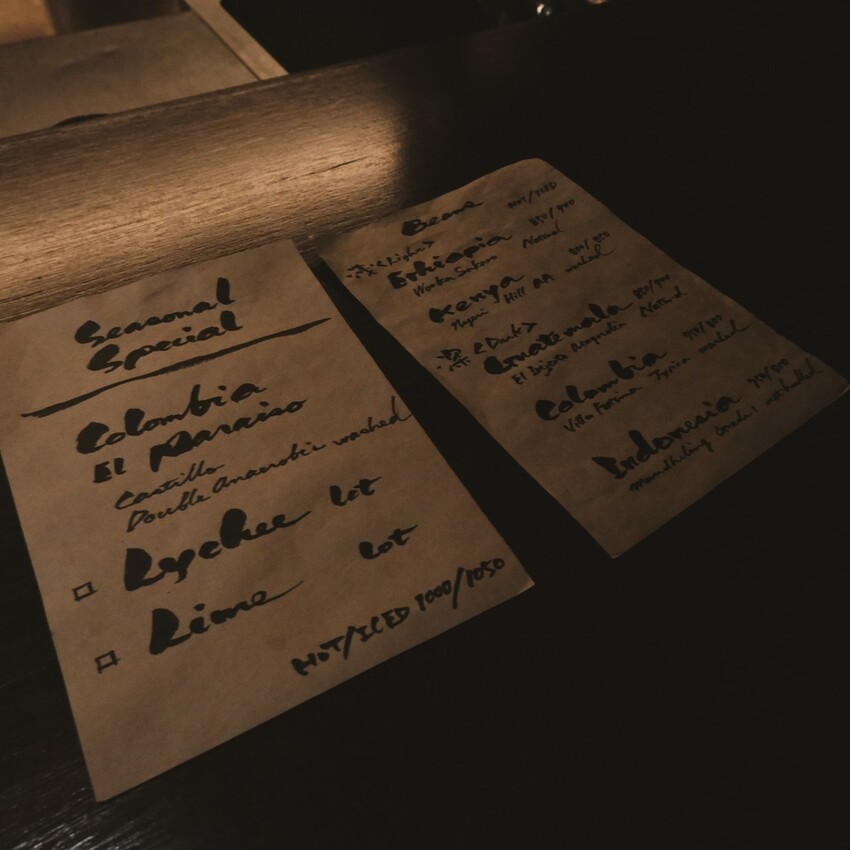 Seasonal
Special
Colombia
El Paraiso
Castillo
Double Anaerobic washed
□ Lychee lot
□ Lime lot
HOT/ICED 1000/1050
Beans HOT/ICED
<Light>
Ethiopia 850/900
Worka Sakaro Natural
Kenya
Hill AA washed
<Dark>
Guatemala 850/900
El Injerto Natural
Colombia
Villa Fatima Typica washed
Indonesia
Mandheling